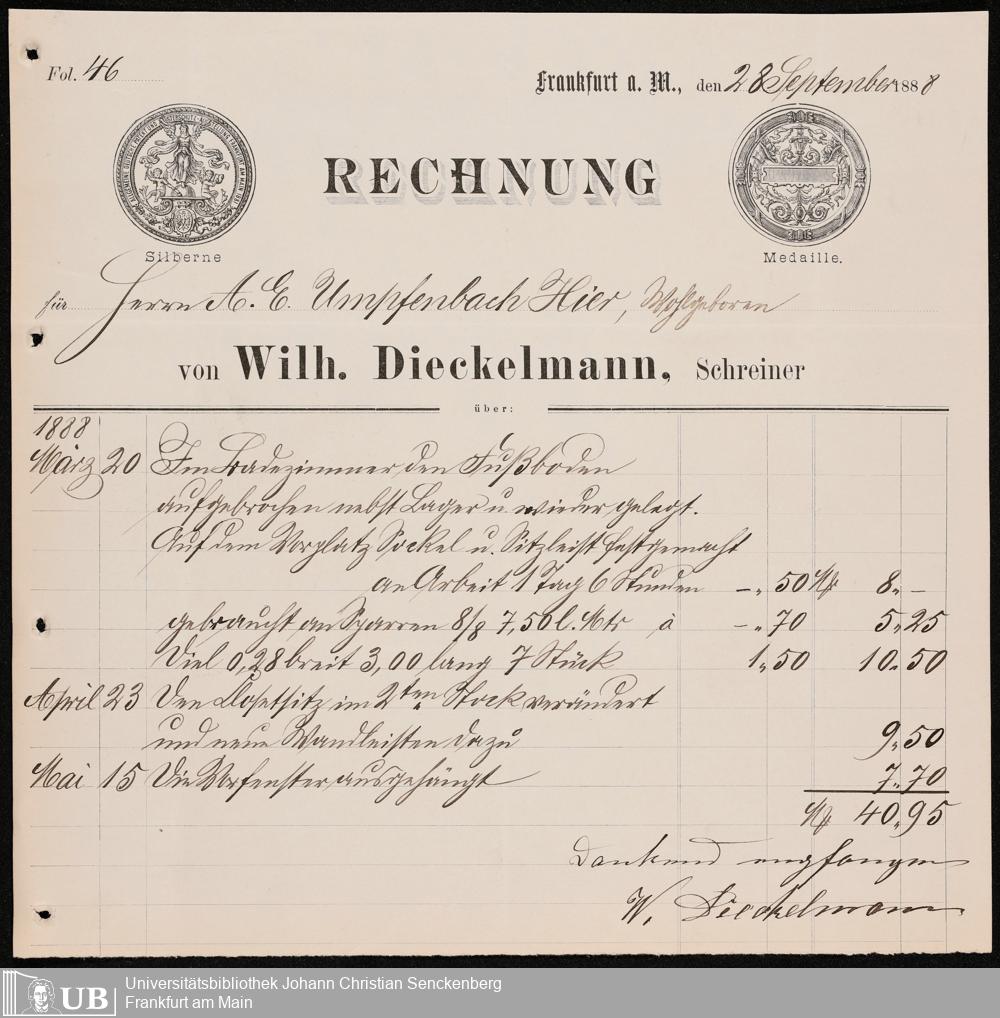 Fol. 46
Frankfurt a. M., den 28 September 1888
RECHNUNG
Silberne
Medaille.
für Herrn A. E. Umpfenbach Hier, Wohlgeboren
von Wilh. Dieckelmann, Schreiner
über:
1888
März 20 Im Badezimmer den Fußboden
aufgebrochen nebst Lager u. wieder gelegt.
Auf dem Vorplatz Sockel u. Sitzleist festgemacht
an Arbeit 1 Tag 6 Stunden -„ 50 M 8„ -
gebraucht an Sparren 8/8 7,50 l. Mtr à -„ 70 5„ 25
Diel 0,28 breit 3,00 lang 7 Stück 1„ 50 10„ 50
April 23 Den Closetsitz im 2ten Stock verändert
und neue Wandleisten dazu 9„ 50
Mai 15 Die Vorfenster ausgehängt 7„ 70
M 40„ 95
Dankend empfangen
W. Dieckelmann
UB
Universitätsbibliothek Johann Christian Senckenberg
Frankfurt am Main